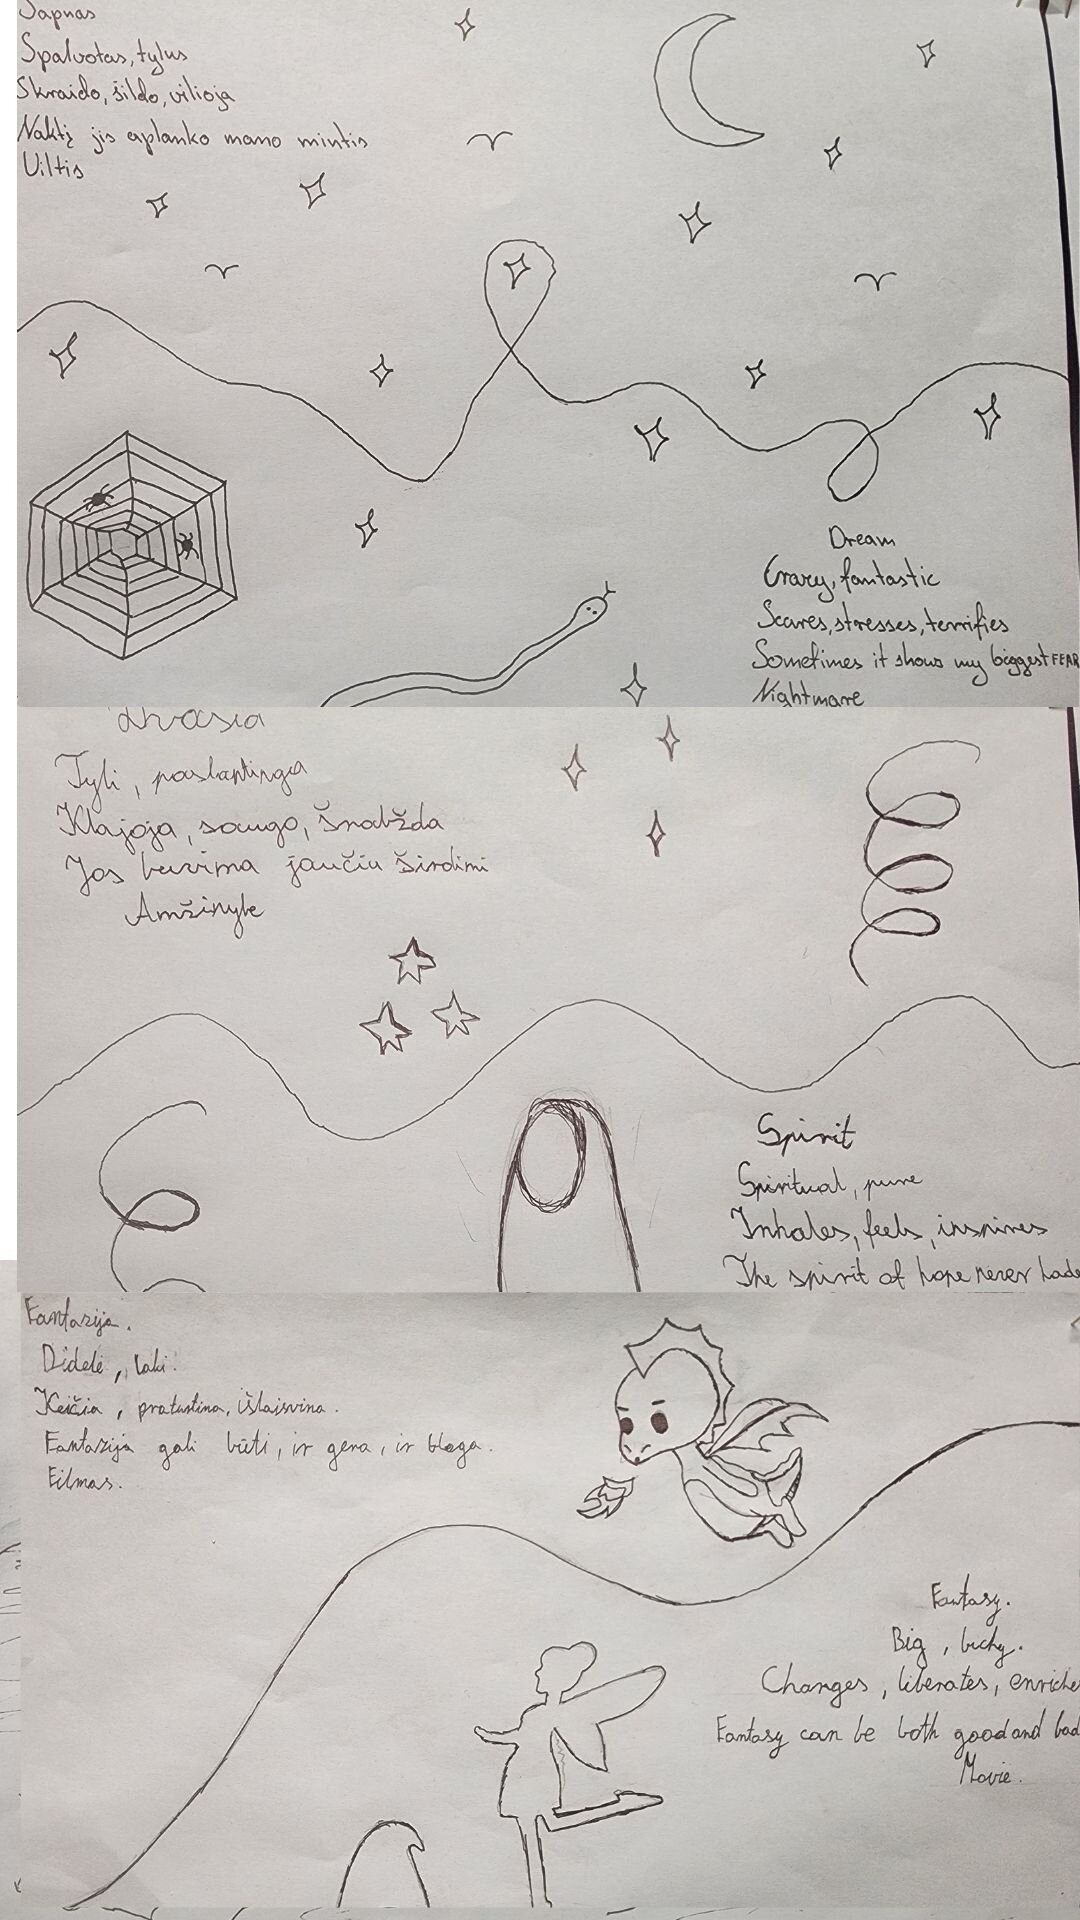 Sapnas
Spalvotas, tylus
Skraido, šildo, vilioja
Naktį jis aplanko mano mintis
Viltis
Dream
Crazy, fantastic
Scares, stresses, terrifies
Sometimes it shows my biggest FEAR
Nightmare
Dvasia
Tyli, paslaptinga
Klajoja, saugo, šnabžda
Jos buvima jaučiu širdimi
Amžinybe
Spirit
Spiritual, pure
Inhales, feels, inspires
The spirit of hope never
Fantazija.
Didelė, laki.
Keičia, praturtina, išlaisvina.
Fantazija gali būti, ir gera, ir bloga.
Filmas.
Fantasy.
Big,
Changes, liberates, enriche
Fantasy can be both good and bad
Movie.